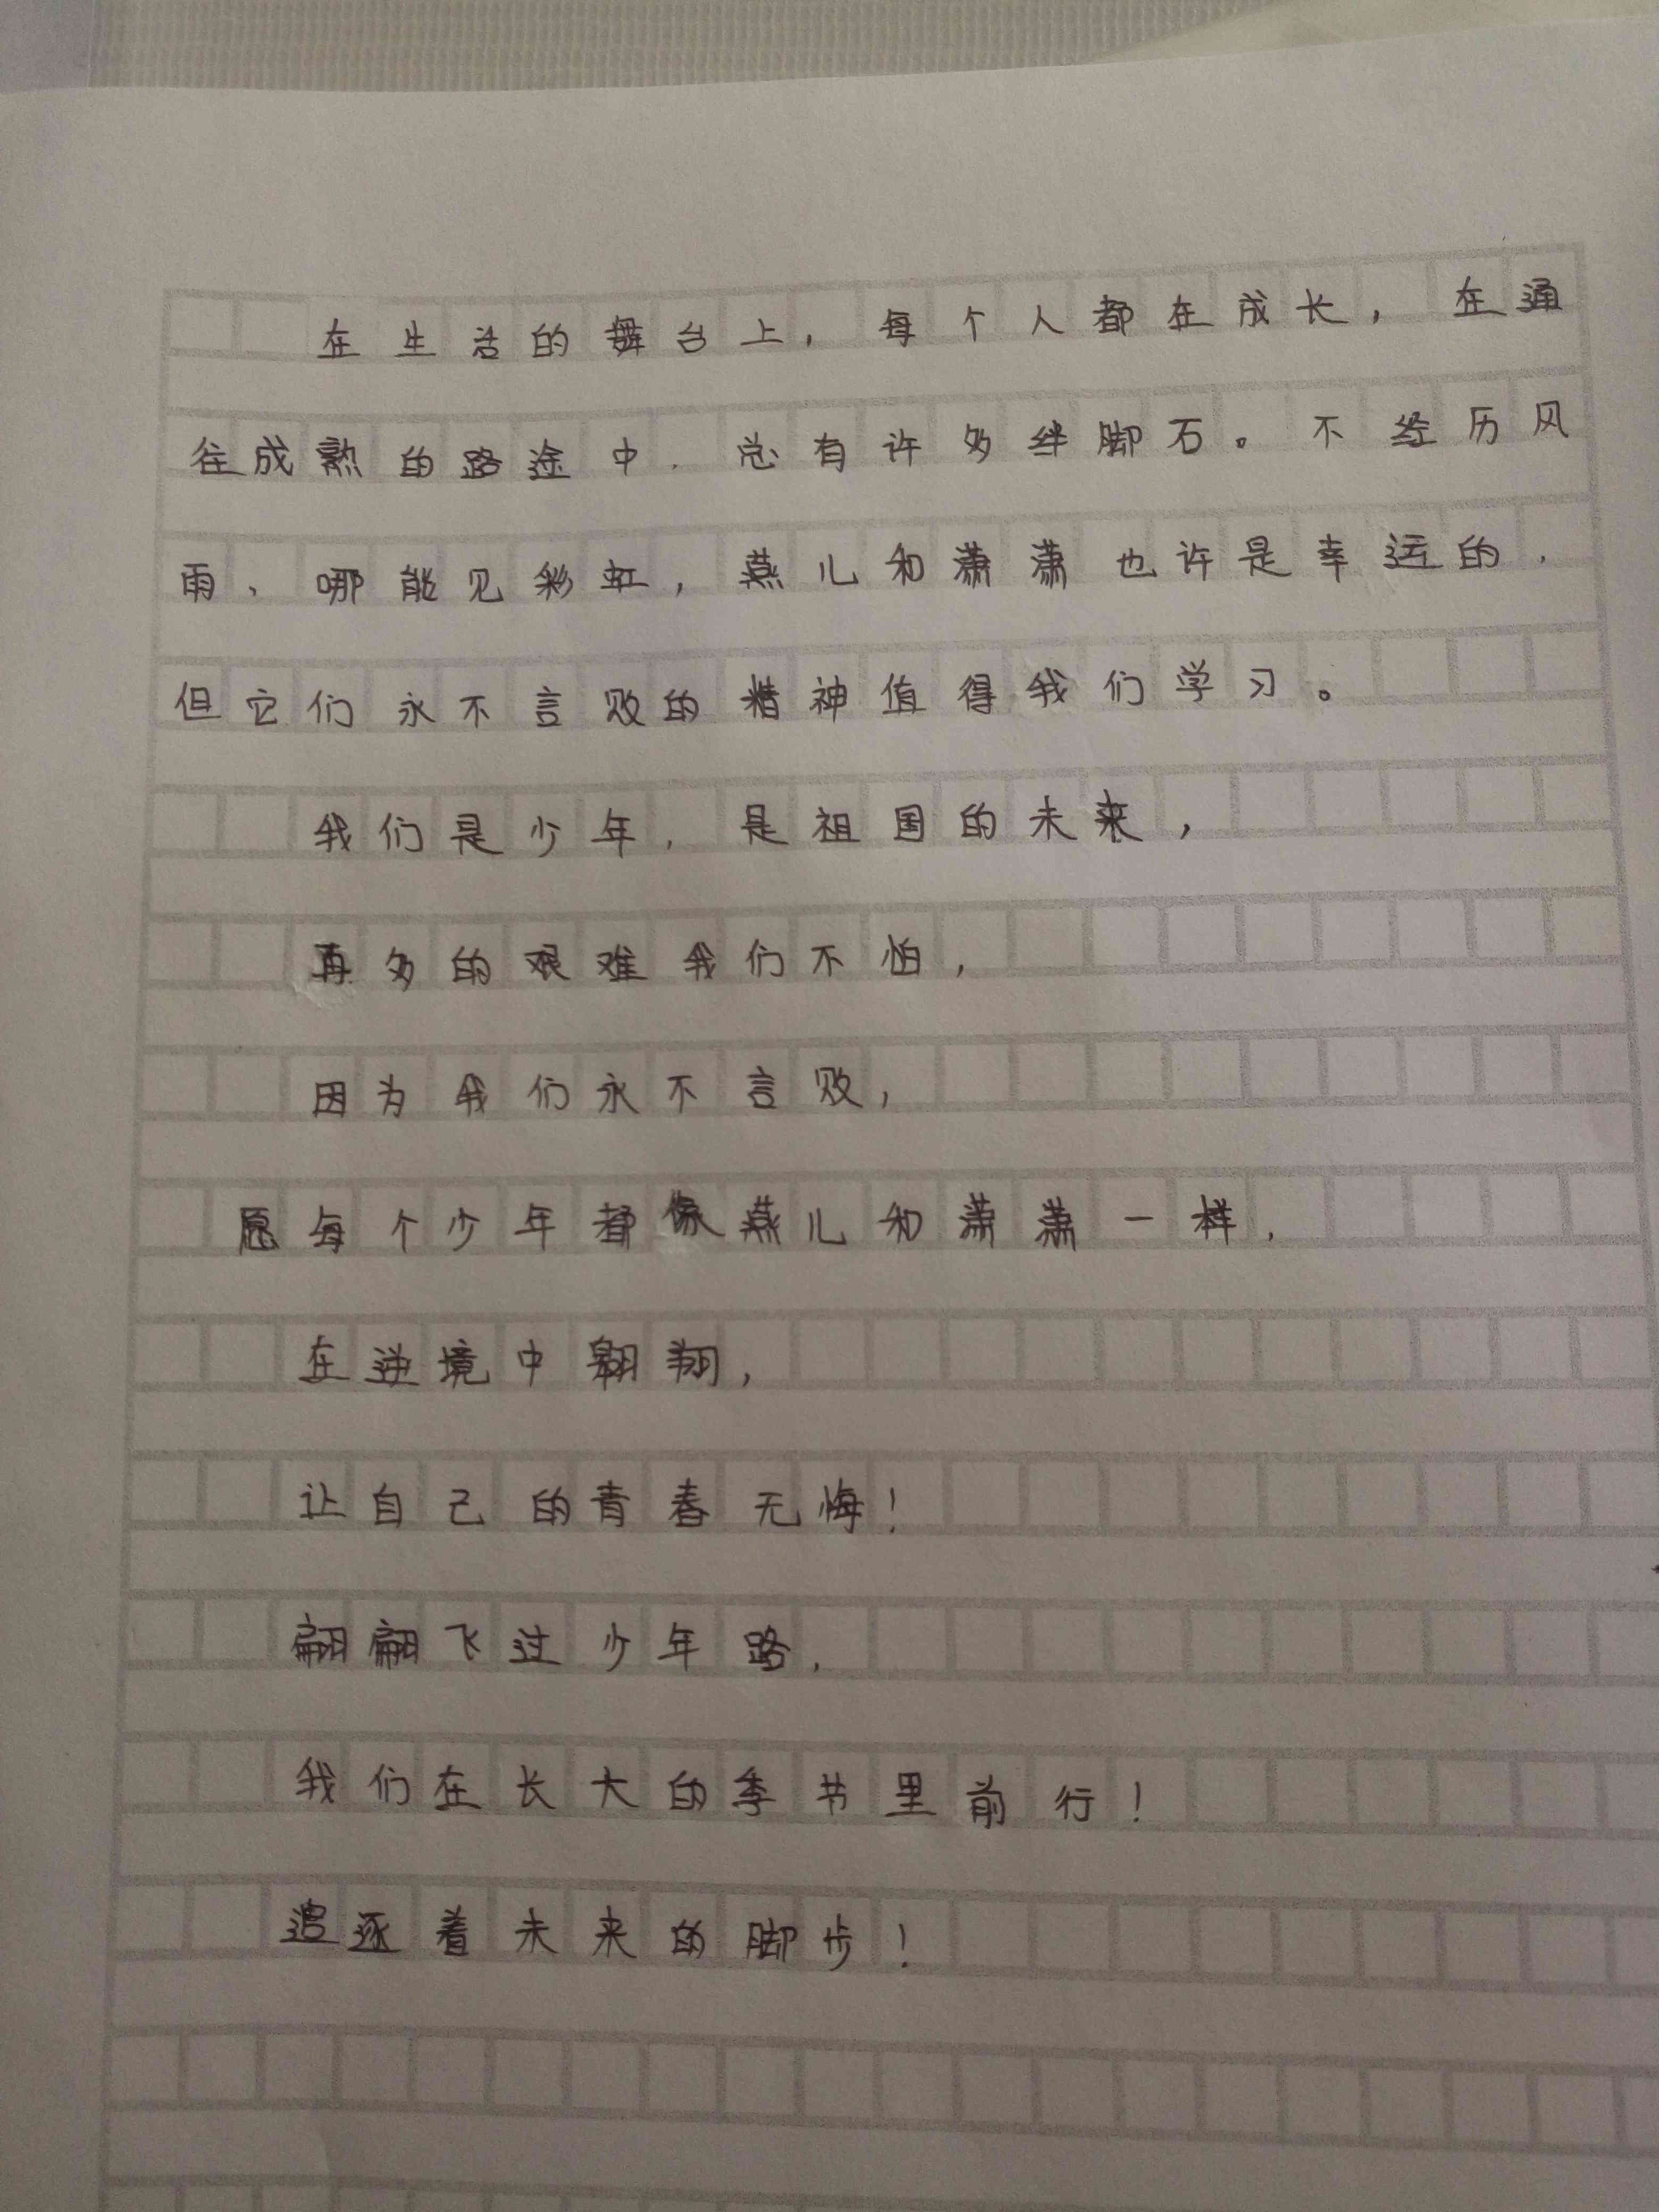 在生活的舞台上，每个人都在成长，在通
往成熟的路途中，总有许多绊脚石。不经历风
雨，哪能见彩虹，燕儿和潇潇也许是幸运的，
但它们永不言败的精神值得我们学习。
我们是少年，是祖国的未来，
再多的艰难我们不怕，
因为我们永不言败，
愿每个少年都像燕儿和潇潇一样，
在逆境中翱翔，
让自己的青春无悔！
翩翩飞过少年路，
我们在长大的季节里前行！
追逐着未来的脚步！